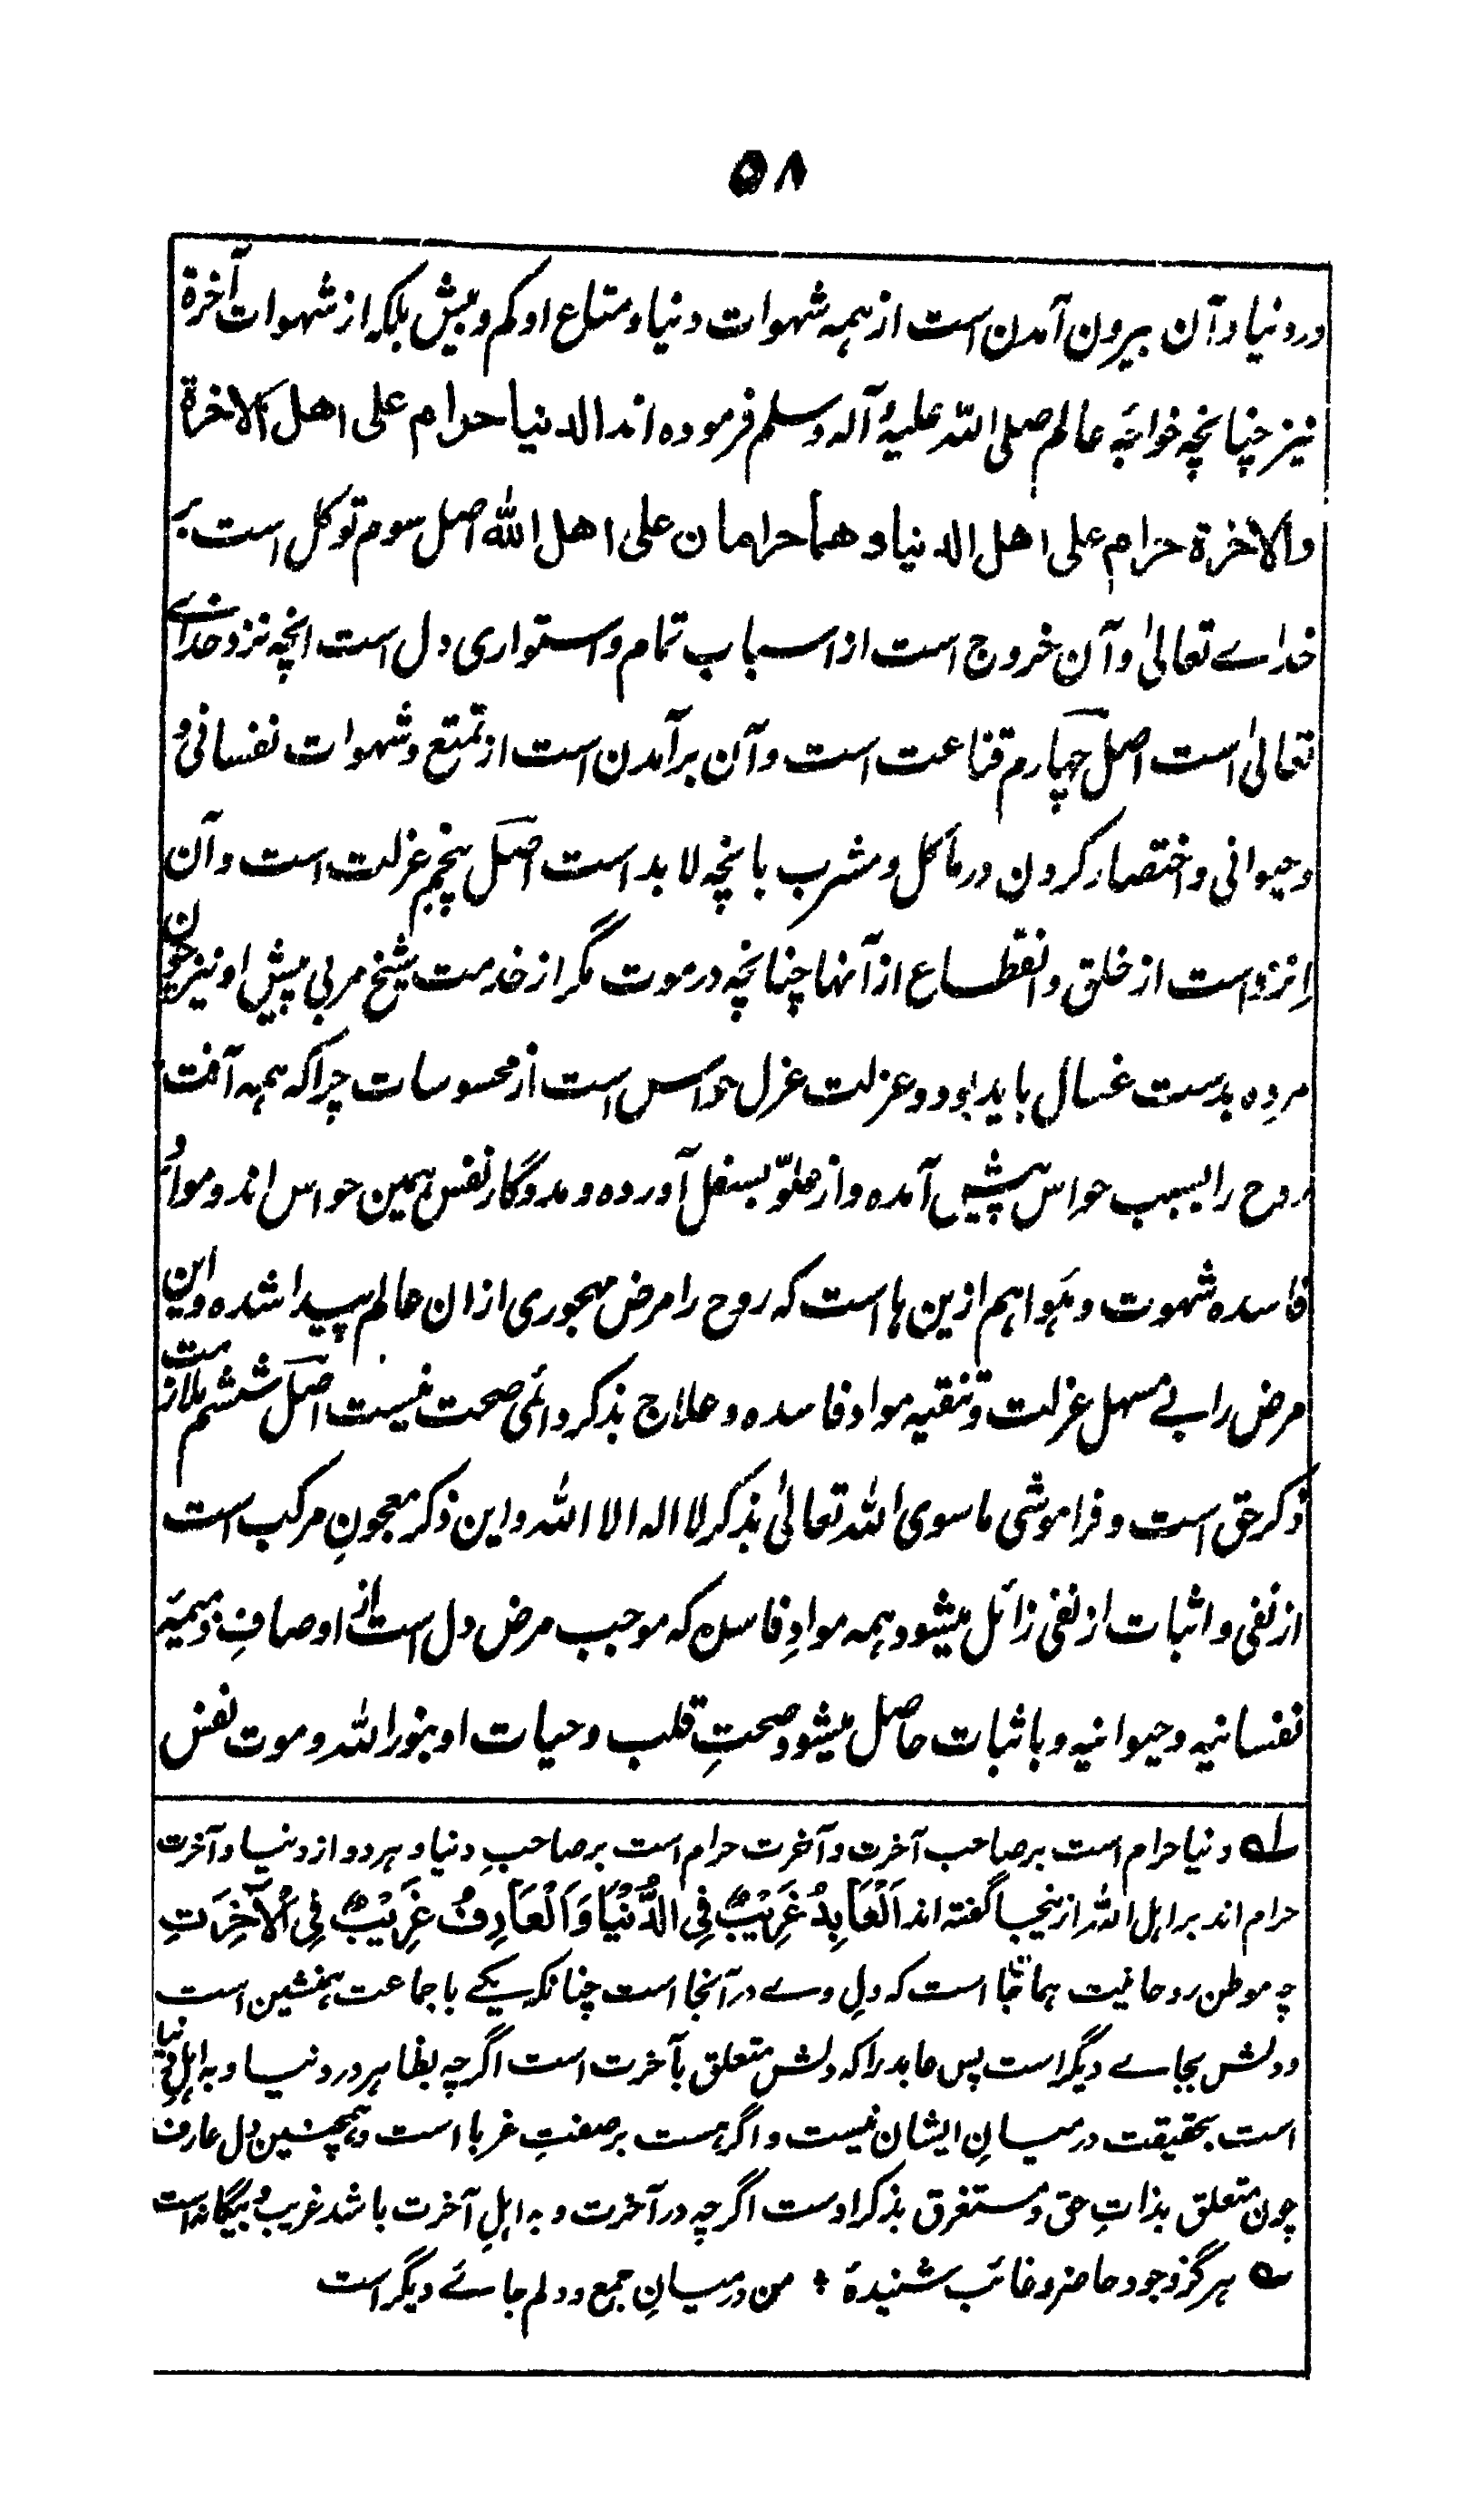 ۵۸
در دنیا و آن بیرون آمدن است از ہمہ شہوات دنیا و متاع او کم و بیش بلکہ از شہوات آخرة
نیز چنانچہ خواجہ عالم صلی اللہ علیہ و آلہ وسلم فرموده اند الدنیا حرام علی اهل الاخرة
والاخرة حرام علی اهل الدنیا و هما حرامان علی اهل الله اصل سوم توکل است بر
خداے تعالیٰ و آن خروج است از اسباب تمام و استواری دل است انچہ نزد خداے
تعالیٰ است اصل چہارم قناعت است و آن برآمدن است از تمتع و شہوات نفسانی و
وحیوانی و اختصار کردن در ماکل و مشرب بانچہ لابد است اصل پنجم عزلت است و آن
انزوا ست از خلق و انقطاع از آنہا چنانچہ در موت مگر از خدمت شیخ مربی پیش او نیز چون
مرده بدست غسال باید بود و عزلت عزل حواس است از محسوسات چرا کہ ہمہ آفت
روح را بسبب حواس پیش آمده و از علوّ بسفل آورده و مددگار نفس ہمین حواس اند و مواد
فاسده شہوت و ہَوا ہم ازین ہا است کہ روح را مرض مہجوری ازان عالم پیدا شده و این
مرض را بے مسہل عزلت و تنقیہ مواد فاسده و علاج بذکر دائمی صحت نیست اصل ششم ملازمت
ذکر حق است و فراموشی ما سوی اللہ تعالیٰ بذکر لا الہ الا اللہ و این ذکر معجونِ مرکب است
از نفی و اثبات از نفی زائل میشود ہمہ موادِ فاسد کہ موجب مرض دل است از اوصافِ ذمیمہٴ
نفسانیہ و حیوانیہ و باثبات حاصل میشود صحتِ قلب و حیات او بنور اللہ و موت نفس
لے دنیا حرام است بر صاحب آخرت و آخرت حرام است بر صاحبِ دنیا و ہر دو از دنیا و آخرت
حرام اند بر اہل اللہ ازینجا گفتہ اند اَلْعَابِدُ غَرِیْبٌ فِی الدُّنْیَا وَالْعَارِفُ غَرِیْبٌ فِی الْآخِرَتِ
چہ موطن روحانیت ہمانجا است کہ دلِ وے در آنجا است چنانکہ یکے با جماعت ہمنشین است
و دلش بجاے دیگر است پس عابد را کہ دلش متعلق بآخرت است اگرچہ بظاہر در دنیا و بہ اہلِ دنیا
است بحقیقت در میانِ ایشان نیست و اگر ہست بر صفتِ غربا است و ہمچنین دل عارف
چون متعلق بذاتِ حق و مستغرق بذکر اوست اگرچہ در آخرت و بہ اہلِ آخرت باشد غریب و بیگانہ است
ے ہرگز وجود حاضر و غائب شنیدهٴ ؞ من در میانِ جمع و دلم جائے دیگر است